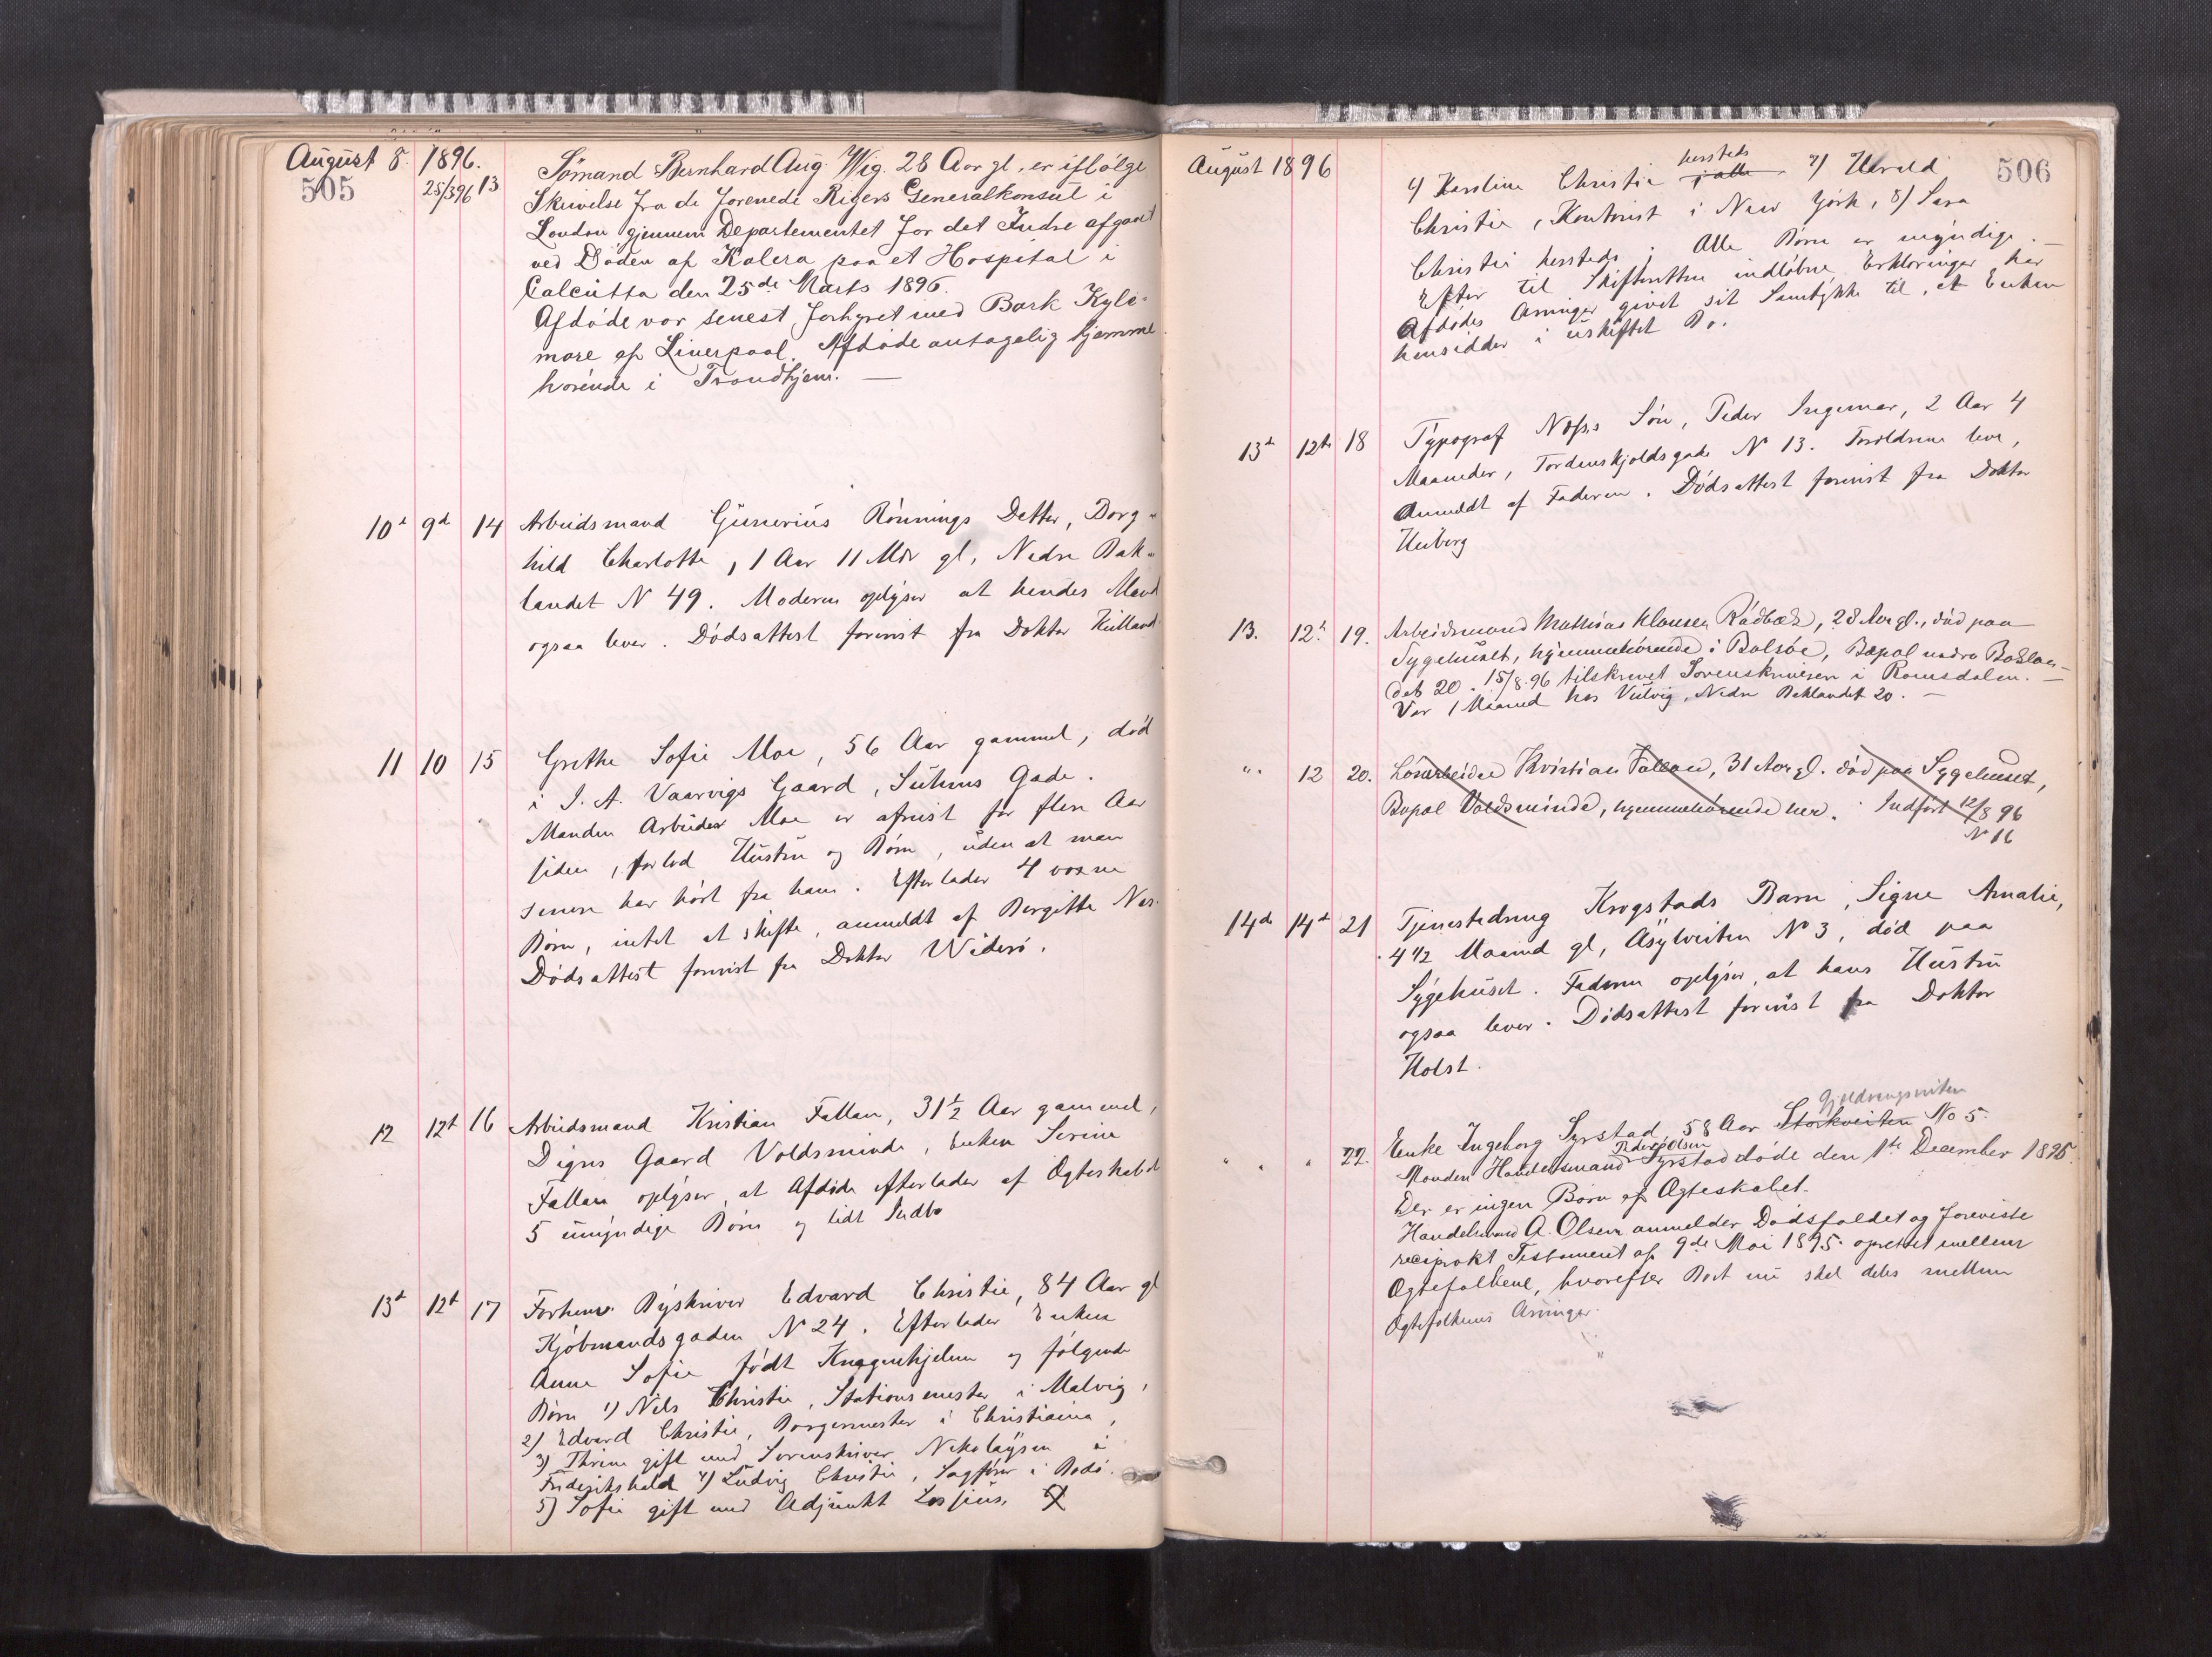 August 8. 1896.
505
25/3 96 13 Sömand Bernhard Aug. Wig. 28 Aar gl., er ifölge
Skrivelse fra de forenede Rigers Generalkonsul i
London gjennem Departementet for det Indre afgaaet
ved Döden af Kolera paa et Hospital i
Calcutta den 25de Marts 1896.
Afdöde var senest forhyret med Bark Kyle-
more af Liverpool. Afdöde antagelig hjemme
hörende i Trondhjem. —
10d 9d 14 Arbeidsmand Gunerius Rönnings Datter, Borg-
hild Charlotte, 1 Aar 11 Mdr gl, Nedre Bak-
landet N 49. Moderen oplyser at hendes Mand
ogsaa lever. Dödsattest forevist fra Doktor Killand
11 10 15 Grethe Sofie Moe, 56 Aar gammel, död
i I. A. Vaarvigs Gaard, Suhms Gade.
Manden Arbeider Moe er afreist for flere Aar
siden, forlod Hustru og Börn, uden at man
senere har hört fra ham. Efterlader 4 voxne
Börn, intet at skifte, anmeldt af Bergitte Nes.
Dödsattest forevist fra Doktor Widerö.
12 12t 16 Arbeidsmand Kristian Fallan, 31 1/2 Aar gammel,
Digres Gaard Voldsminde, Enken Serine
Fallan oplyser, at Afdöde efterlader af Ægteskabet
5 umyndige Börn og lidt Indbo
13d 12t 17 Forhenv. Byskriver Edvard Christie, 84 Aar gl
Kjöbmandsgaden N 24. Efterlader Enken
Anne Sofie födt Knagenhjelm og fölgende
Börn 1) Nils Christie, Stationsmester i Malvig,
2) Edvard Christie, Borgermester i Christiania,
3) Thrine gift med Sorenskriver Nikolaysen i
Frederikshald 4) Ludvig Christie, Sagförer i Bodö.
5) Sofie gift med Adjunkt Lossius,
August 1896
506
hersteds
6) Karoline Christie i alle. 7) Harald
Christie, Kontorist i New York, 8) Sara
Christie hersteds. Alle Börn er myndige. —
Efter til Skifteretten indlöbne Erklæringer har
Afdödes Arvinger givet sit Samtykke til, at Enken
hensidder i uskiftet Bo.
13d 12te 18 Typograf Næss Sön, Peder Ingemar, 2 Aar 4
Maaneder, Tordenskjoldsgade N 13. Forældrene leve,
Anmeldt af Faderen. Dödsattest forevist fra Doktor
Huiberg
13. 12t 19. Arbeidsmand Mathias Klausen Rödbæk, 28 Aar gl., död paa
Sygehuset, hjemmehörende i Bolsöe, Bopæl nedre Baklan-
det 20. 15/8.96 tilskrevet Sorenskriveren i Romsdalen. —
Var 1 Maaned hos Vulvig, Nedre Baklandet 20. —
". 12 20. Lösarbeider Kristian Fallan, 31 Aar gl. död paa Sygehuset,
Bopæl Voldsminde, hjemmehörende her. Indfört 12/8 96
N 16
14de 14d 21 Tjenestedreng Krogstads Barn, Signe Amalie,
4 1/2 Maaned gl, Asylveiten N 3, död paa
Sygehuset. Faderen oplyser, at hans Hustru
ogsaa lever. Dödsattest forevist fra Doktor
Holst.
Gjeldvangsveiten
" " " 22. Enke Ingeborg Syrstad, 58 Aar Storkveiten No 5.
Peder Olsen
Manden Handelsmand Syrstad döde den 1te December 1895.
Der er ingen Börn af Ægteskabet.
Handelsmand A. Olsen anmelder Dödsfaldet og foreviste
reciprokt Testament af 9de Mai 1895 oprettet mellem
Ægtefolkene, hvorefter Boet nu skal deles mellem
Ægtefolkenes Arvinger.